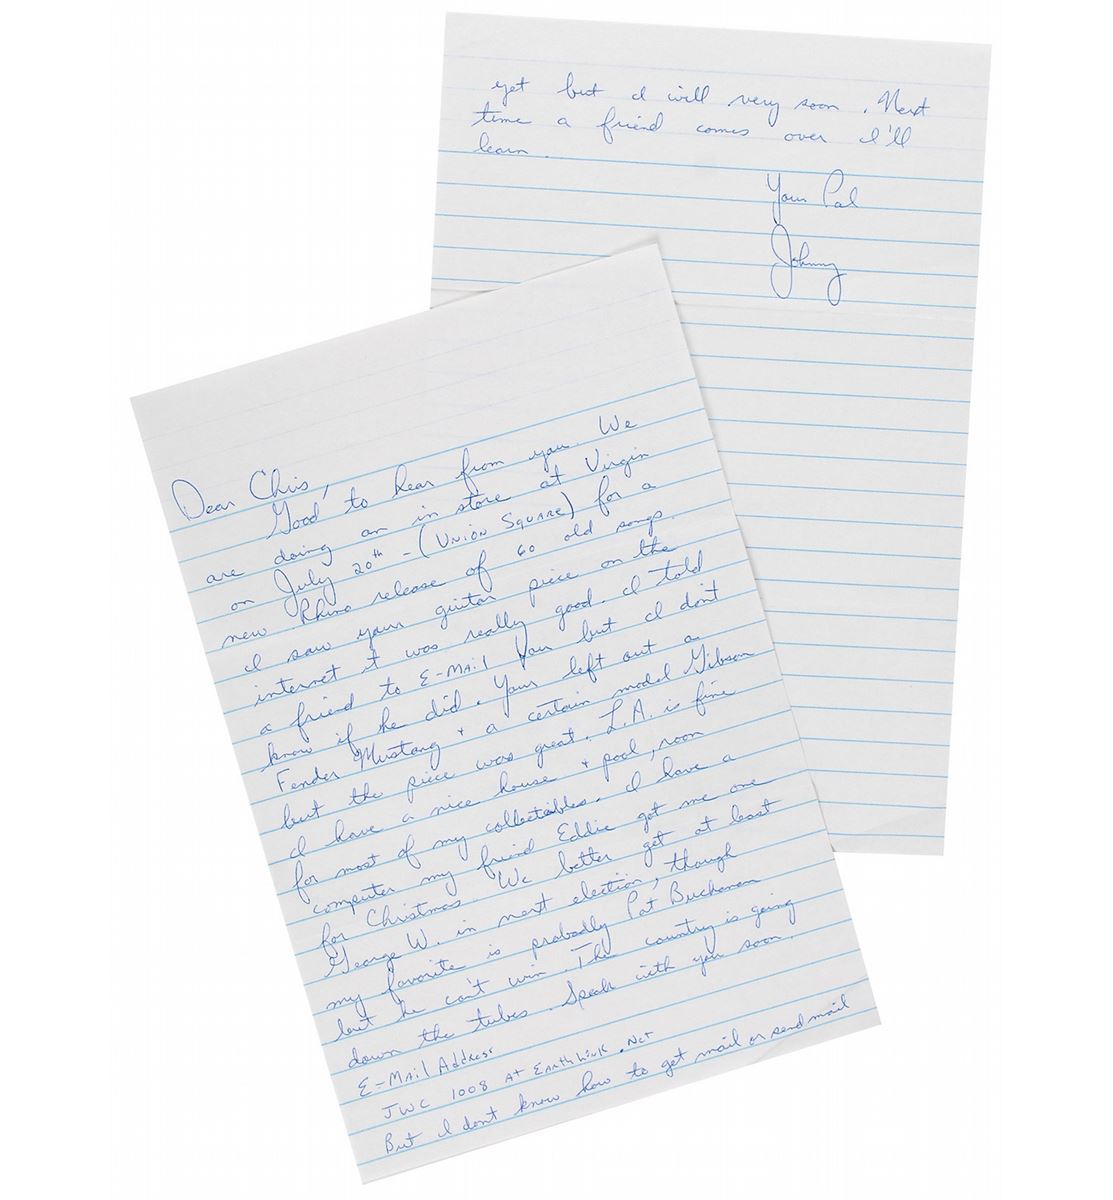 Dear Chris,
Good to hear from you. We
are doing an in store at Virgin
on July 20th - (UNION SQUARE) for a
new Rhino release of 60 old songs.
I saw your guitar piece on the
internet it was really good. I told
a friend to E-MAIL You but I don't
know if he did. Your left out a
Fender Mustang + a certain model Gibson
but the piece was great. L.A. is fine
I have a nice house + pool, room
for most of my collectibles. I have a
computer my friend Eddie got me one
for Christmas. We better get at least
George W. in next election, though
my favorite is probadly Pat Buchanan
but he can't win. The country is going
down the tubes. Speak with you soon.
E-MAIL Address
JWC 1008 AT EARTHLINK.NET
But I dont know how to get mail or send mail
yet but I will very soon. Next
time a friend comes over I'll
learn.
Your Pal
Johnny